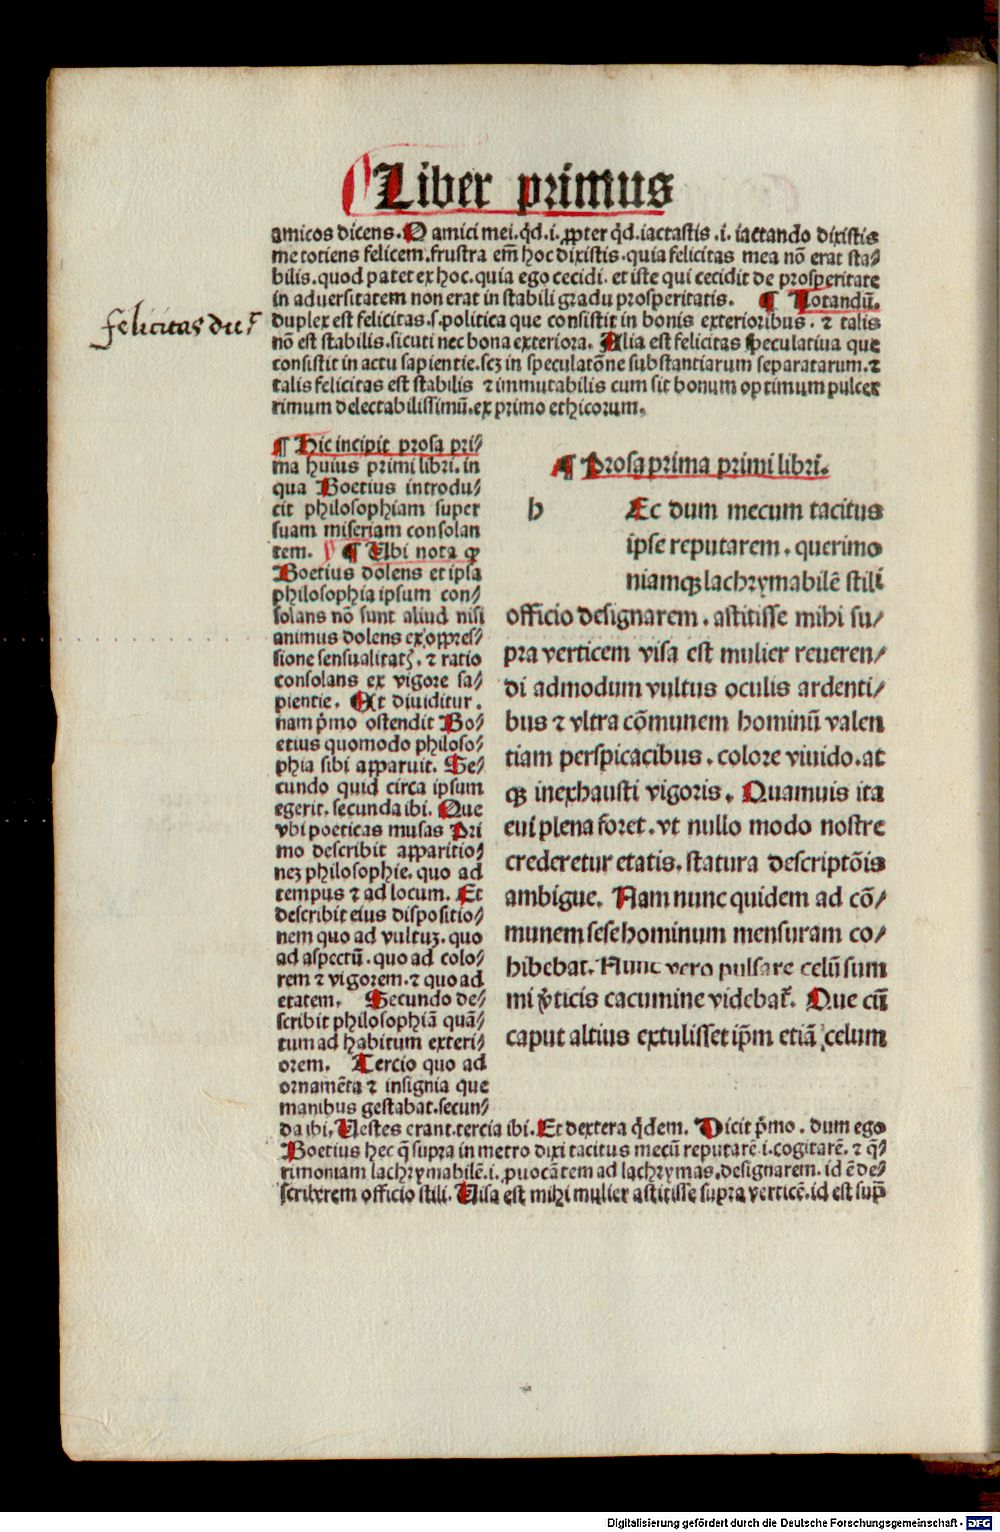 Liber primus
amicos dicens. O amici mei. qd̄. i. ꝓpter qd̄. iactastis .i. iactando dixistis
me totiens felicem. frustra em̄ hoc dixistis. quia felicitas mea nō erat sta/
bilis. quod patet ex hoc. quia ego cecidi. et iste qui cecidit de prosperitate
in aduersitatem non erat in stabili gradu prosperitatis. ¶ Notandū.
felicitas du
duplex est felicitas. s. politica que consistit in bonis exterioribus. ⁊ talis
nō est stabilis. sicuti nec bona exteriora. Alia est felicitas speculatiua que
consistit in actu sapientie. scꝫ in speculatōne substantiarum separatarum. ⁊
talis felicitas est stabilis ⁊ immutabilis cum sit bonum optimum pulcer
rimum delectabilissimū. ex primo ethicorum.
¶ Hic incipit prosa pri/
ma huius primi libri. in
qua Boetius introdu/
cit philosophiam super
suam miseriam consolan
tem. ¶ Ubi nota ꝙ
Boetius dolens et ipsa
philosophia ipsum con/
solans nō sunt aliud nisi
animus dolens ex oppres/
sione sensualitatꝭ. ⁊ ratio
consolans ex vigore sa/
pientie. Et diuiditur.
nam p̄mo ostendit Bo/
etius quomodo philoso/
phia sibi apparuit. Se/
cundo quid circa ipsum
egerit. secunda ibi. Que
vbi poeticas musas Pri
mo describit apparitio/
neꝫ philosophie. quo ad
tempus ⁊ ad locum. Et
describit eius dispositio/
nem quo ad vultuꝫ. quo
ad aspectū. quo ad colo/
rem ⁊ vigorem. ⁊ quo ad
etatem. Secundo de/
scribit philosophiā quā/
tum ad habitum exteri/
orem. Tercio quo ad
ornamēta ⁊ insignia que
manibus gestabat. secun/
¶ Prosa prima primi libri.
h Ec dum mecum tacitus
ipse reputarem. querimo
niamqꝫ lachrymabilē stili
officio designarem. astitisse mihi su/
pra verticem visa est mulier reueren/
di admodum vultus oculis ardenti/
bus ⁊ vltra cōmunem hominū valen
tiam perspicacibus. colore viuido. at
qꝫ inexhausti vigoris. Quamuis ita
eui plena foret. vt nullo modo nostre
crederetur etatis. statura descriptōis
ambigue. Nam nunc quidem ad cō/
munem sese hominum mensuram co/
hibebat. Nunc vero pulsare celū sum
mi v̓ticis cacumine videbat᷑. Que cū
caput altius extulisset ip̄m etiā celum
da ibi. Uestes erant. tercia ibi. Et dextera q̇dem. Dicit p̄mo. dum ego
Boetius hec q̄ supra in metro dixi tacitus mecū reputarē. i. cogitarē. ⁊ q̄/
rimoniam lachrymabilē. i. ꝓuocātem ad lachrymas. designarem. id ē de/
scriberem officio stili. Uisa est mihi mulier astitisse supra verticē. id est sup̄
Digitalisierung gefördert durch die Deutsche Forschungsgemeinschaft - DFG